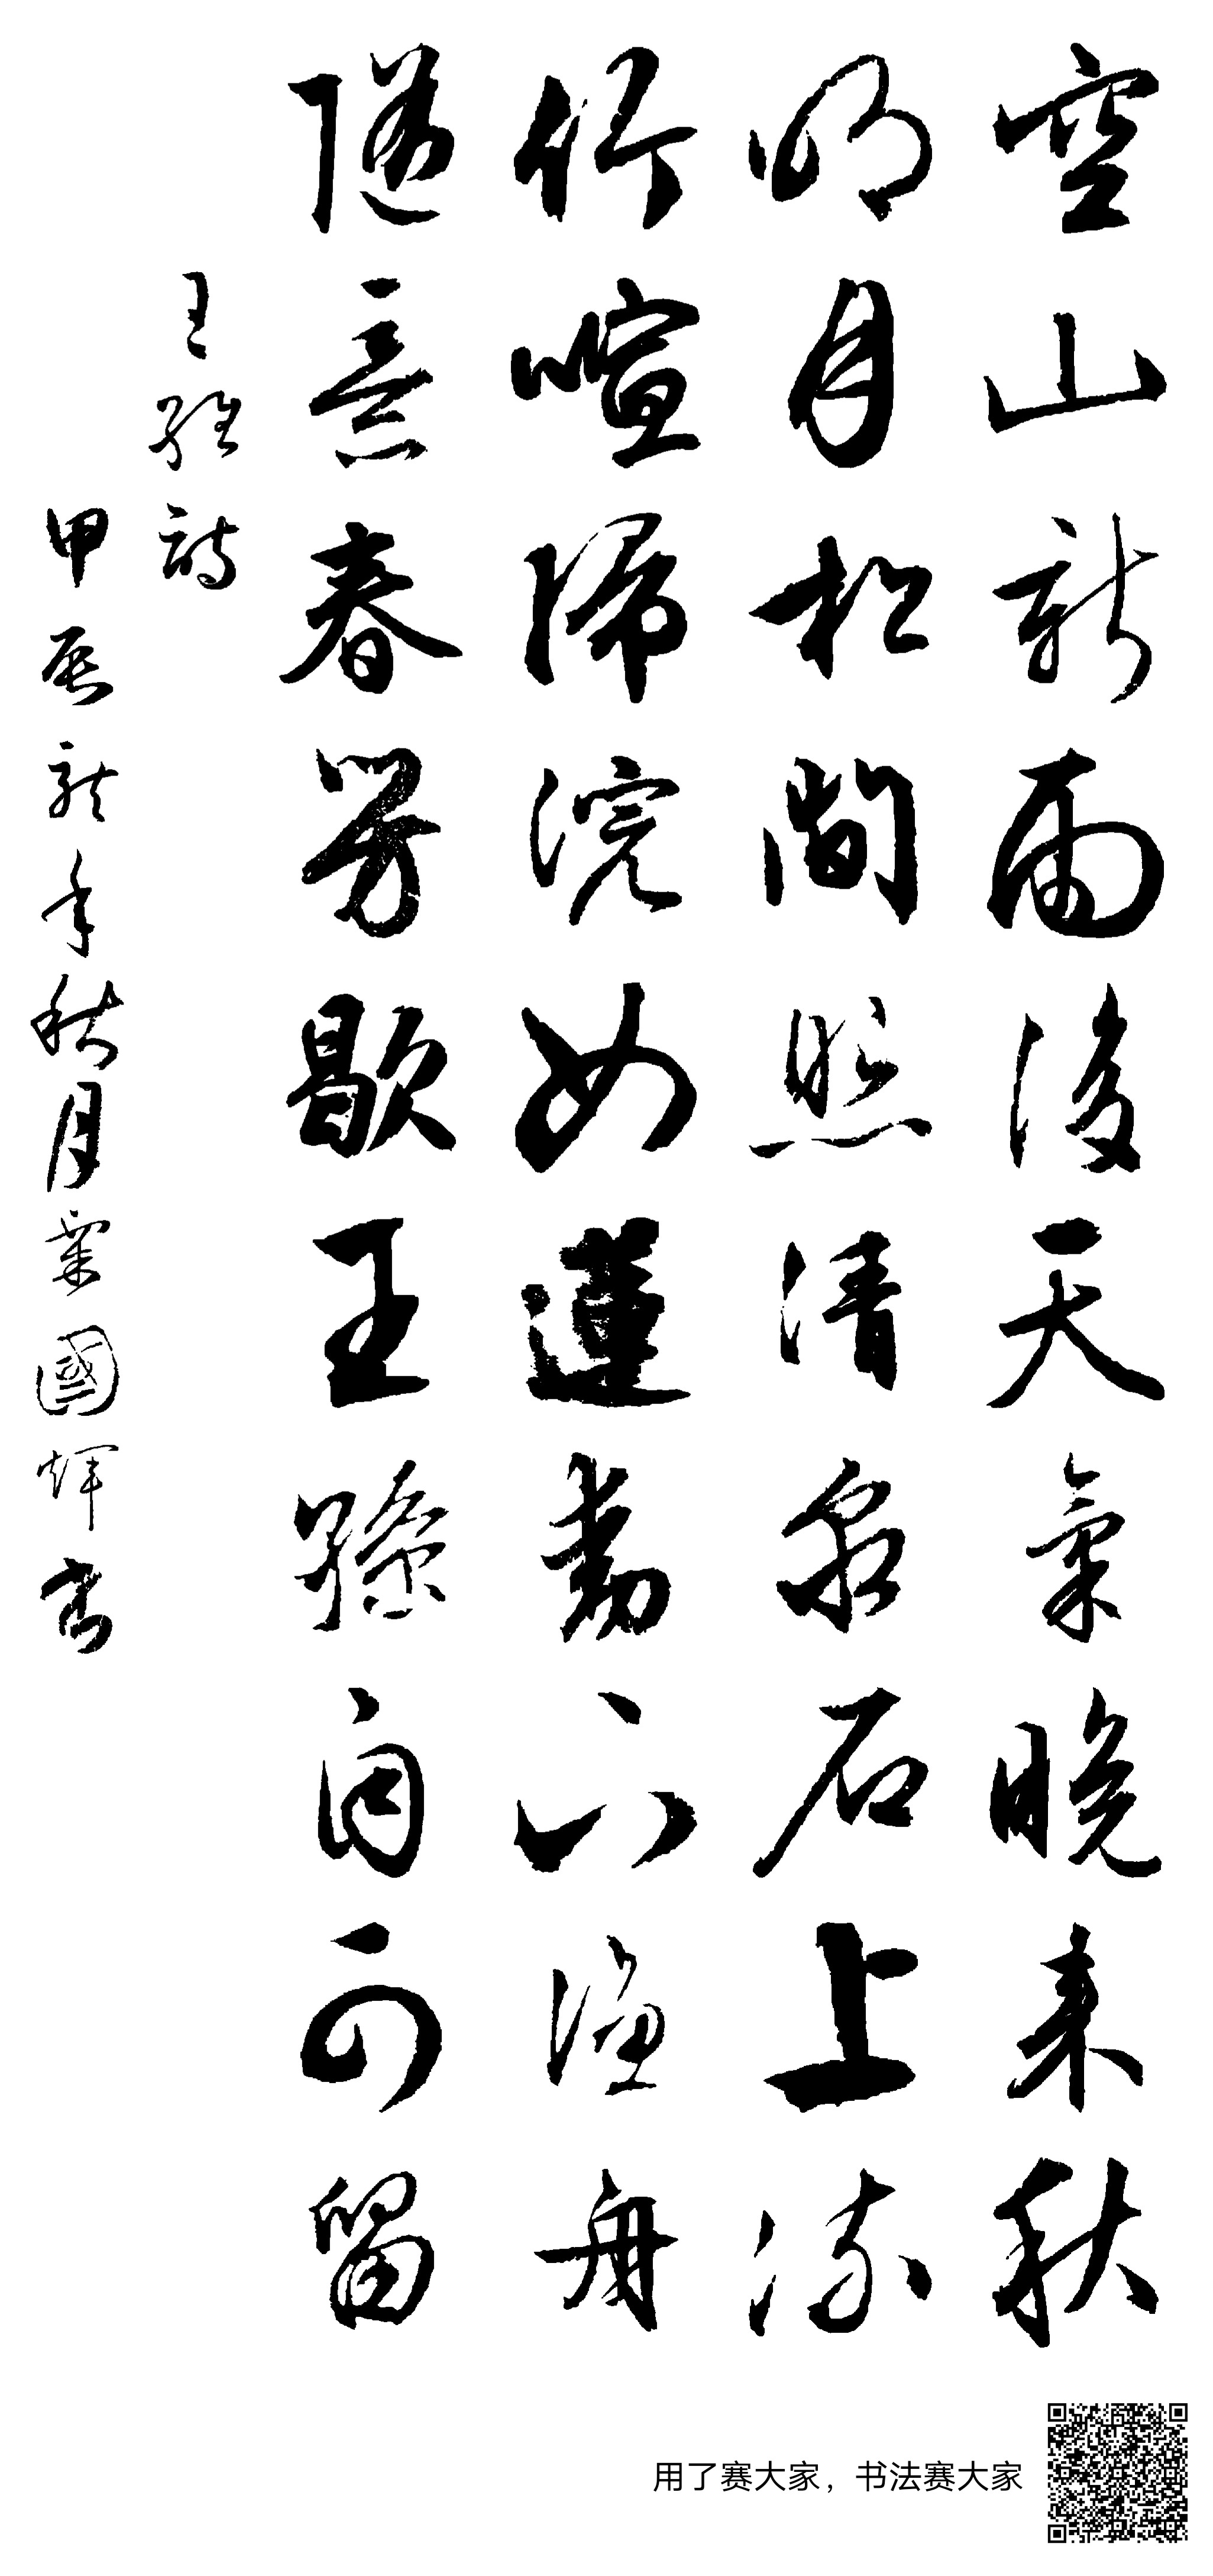 空山新雨後天氣晚来秋
明月松間照清泉石上流
竹喧歸浣女蓮動下漁舟
隨意春芳歇王孫自可留
王維詩
甲辰龍年秋月葉國輝書
用了赛大家，书法赛大家